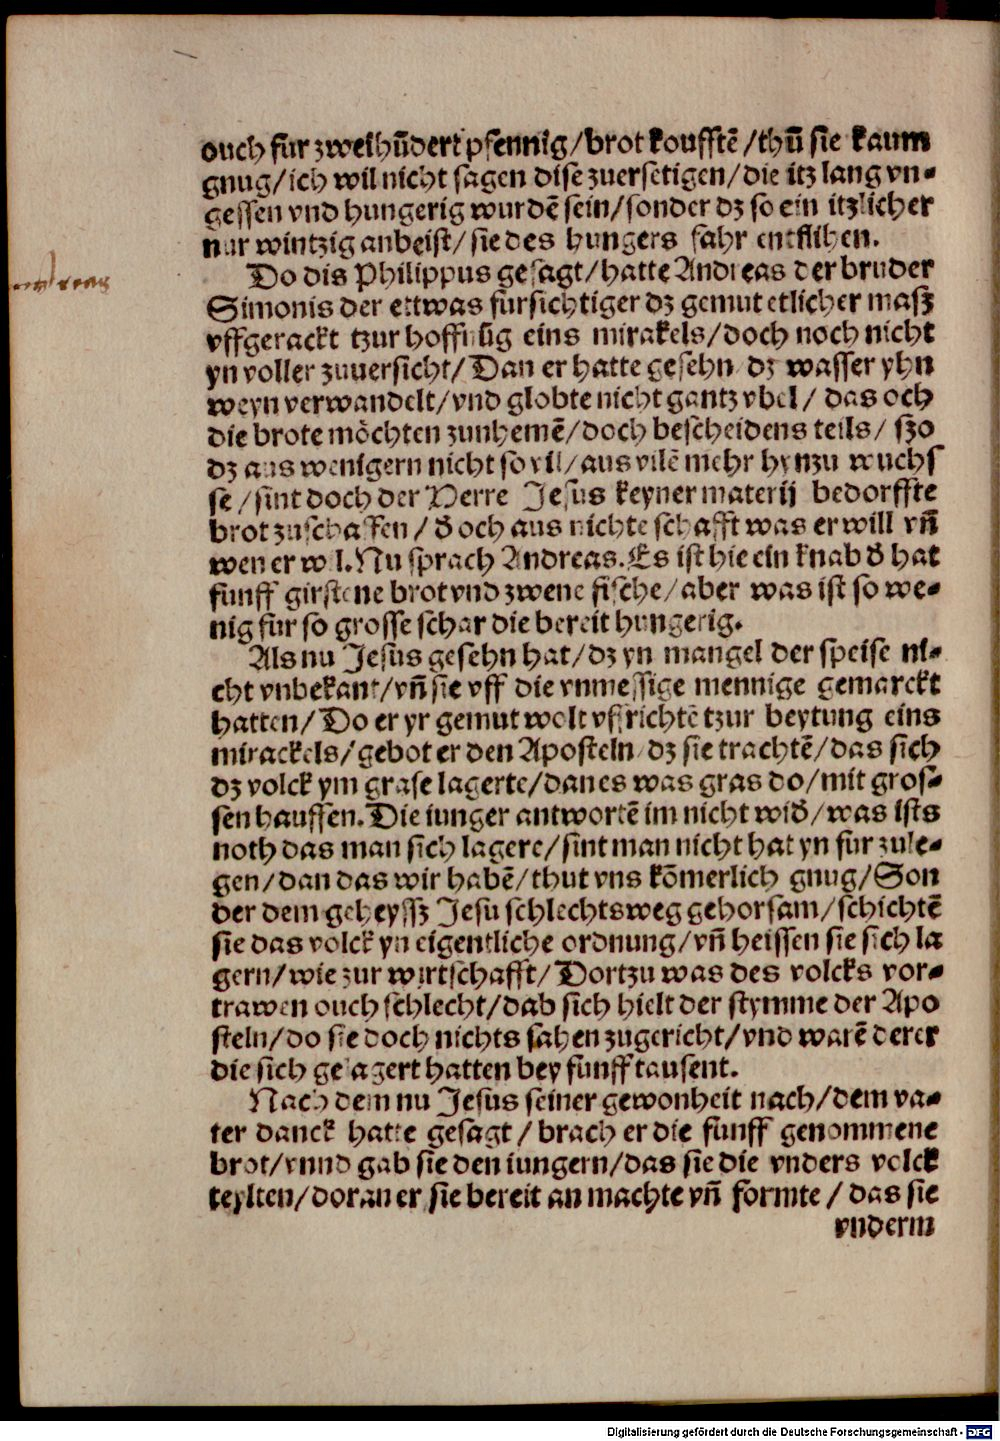 ouch für zweihūdert pfennig/brot koufftē/thū sie kaum
gnug/ich wil nicht sagen dise zuersetigen/die itz lang vn-
gessen vnd hungerig wurdē sein/sonder dz so ein itzlicher
nur wintzig anbeist/sie des hungers fahr entflihen.
Do dis Philippus gesagt/hatte Andreas der bruder
Simonis der ettwas fursichtiger dz gemut etlicher masz
vffgerackt tzur hoffnūg eins mirakels/doch noch nicht
yn voller zuuersicht/Dan er hatte gesehn dz wasser yhn
weyn verwandelt/vnd globte nicht gantz vbel/das och
die brote möchten zunhemē/doch bescheidens teils/szo
dz aus wenigern nicht so vil/aus vilē mehr hynzu wuchs
se/sint doch der Herre Jesus keyner materij bedorffte
brot zuschaffen/doch aus nichte schafft was er will vñ
wen er wil. Nu sprach Andreas. Es ist hie ein knab d̄ hat
funff girstene brot vnd zwene fische/aber was ist so we-
nig fur so grosse schar die bereit hungerig.
Als nu Jesus gesehn hat/dz yn mangel der speise ni-
cht vnbekant/vñ sie vff die vnmessige mennige gemarckt
hatten/Do er yr gemut wolt vffrichtē tzur beytung eins
mirackels/gebot er den Aposteln dz sie trachtē/das sich
dz volck ym grase lagerte/dan es was gras do/mit gros-
sen hauffen. Die iunger antwortē im nicht wid̄/was ists
noth das man sich lagere/sint man nicht hat yn fur zule-
gen/dan das wir habē/thut vns kōmerlich gnug/Son
der dem geheyssz Jesu schlechtsweg gehorsam/schichtē
sie das volck yn eigentliche ordnung/vñ heissen sie sich la
gern/wie zur wirtschafft/Dortzu was des volcks vor-
trawen ouch schlecht/dab sich hielt der stymme der Apo
steln/do sie doch nichts sahen zugericht/vnd warē derer
die sich gelagert hatten bey funff tausent.
Nach dem nu Jesus seiner gewonheit nach/dem va-
ter danck hatte gesagt/brach er die funff genommene
brot/vnnd gab sie den iungern/das sie die vnders volck
teylten/doran er sie bereit an machte vñ formte/das sie
vnderm
Digitalisierung gefördert durch die Deutsche Forschungsgemeinschaft - DFG